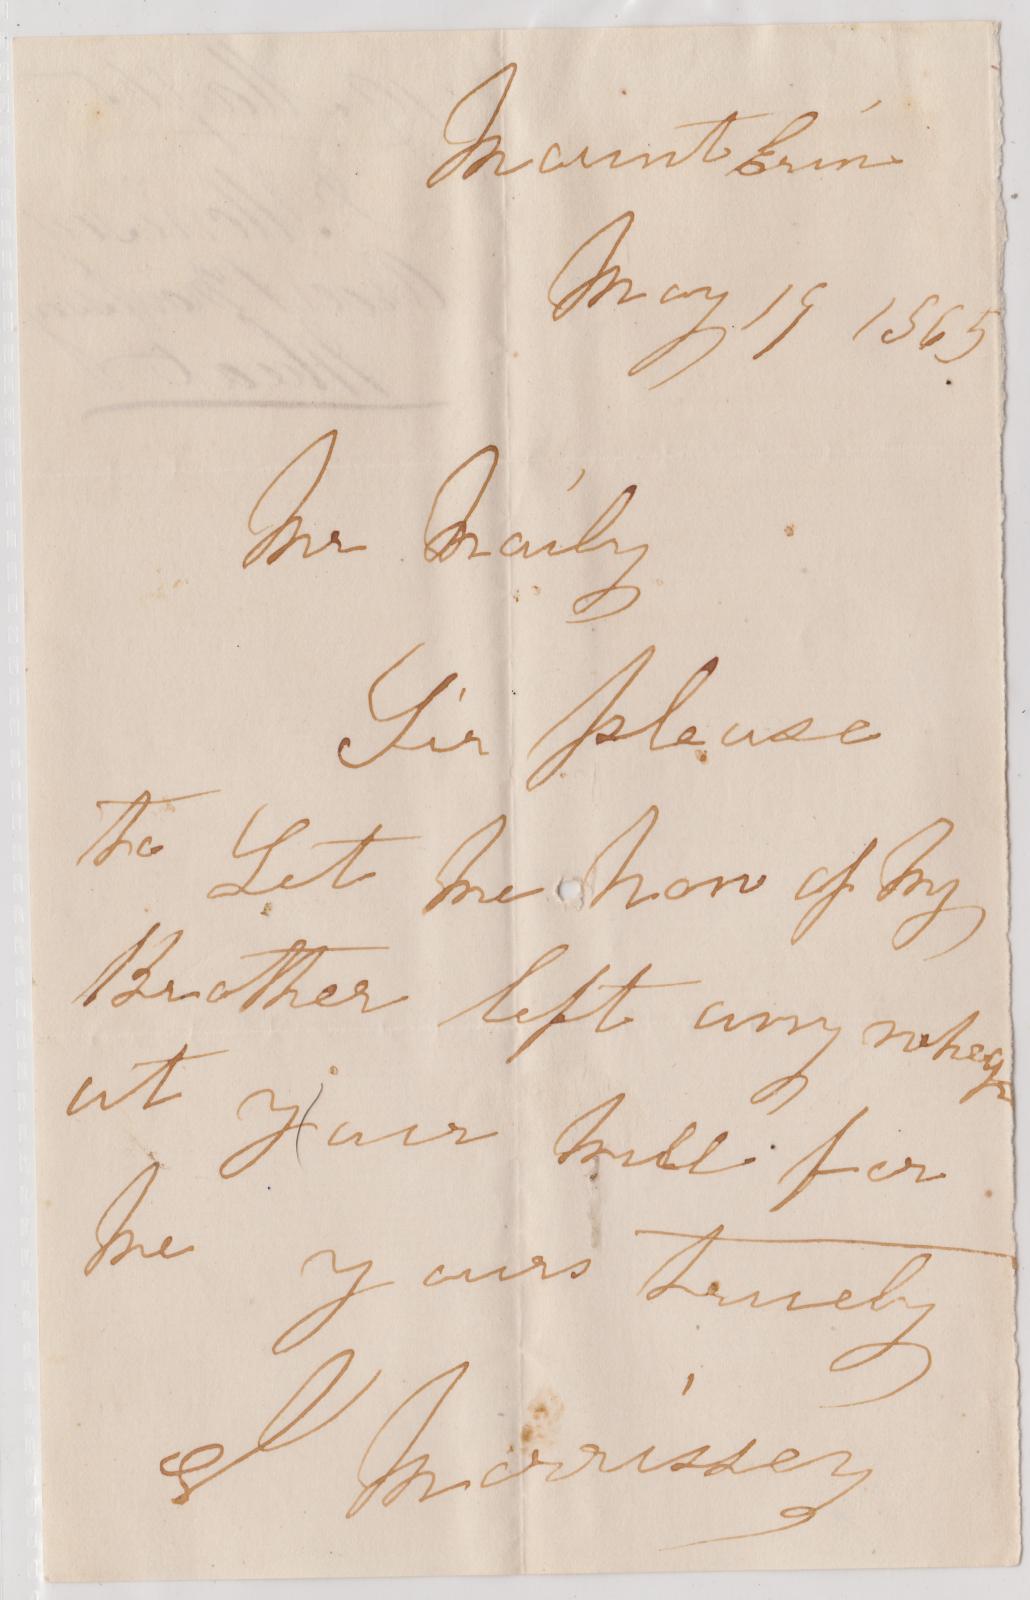 Mount Erin
May 19 1865
Mr Naily
Sir please
to Let me now of My
Brother left anny wheat
at your mill for
me yours trueby
Morrissey